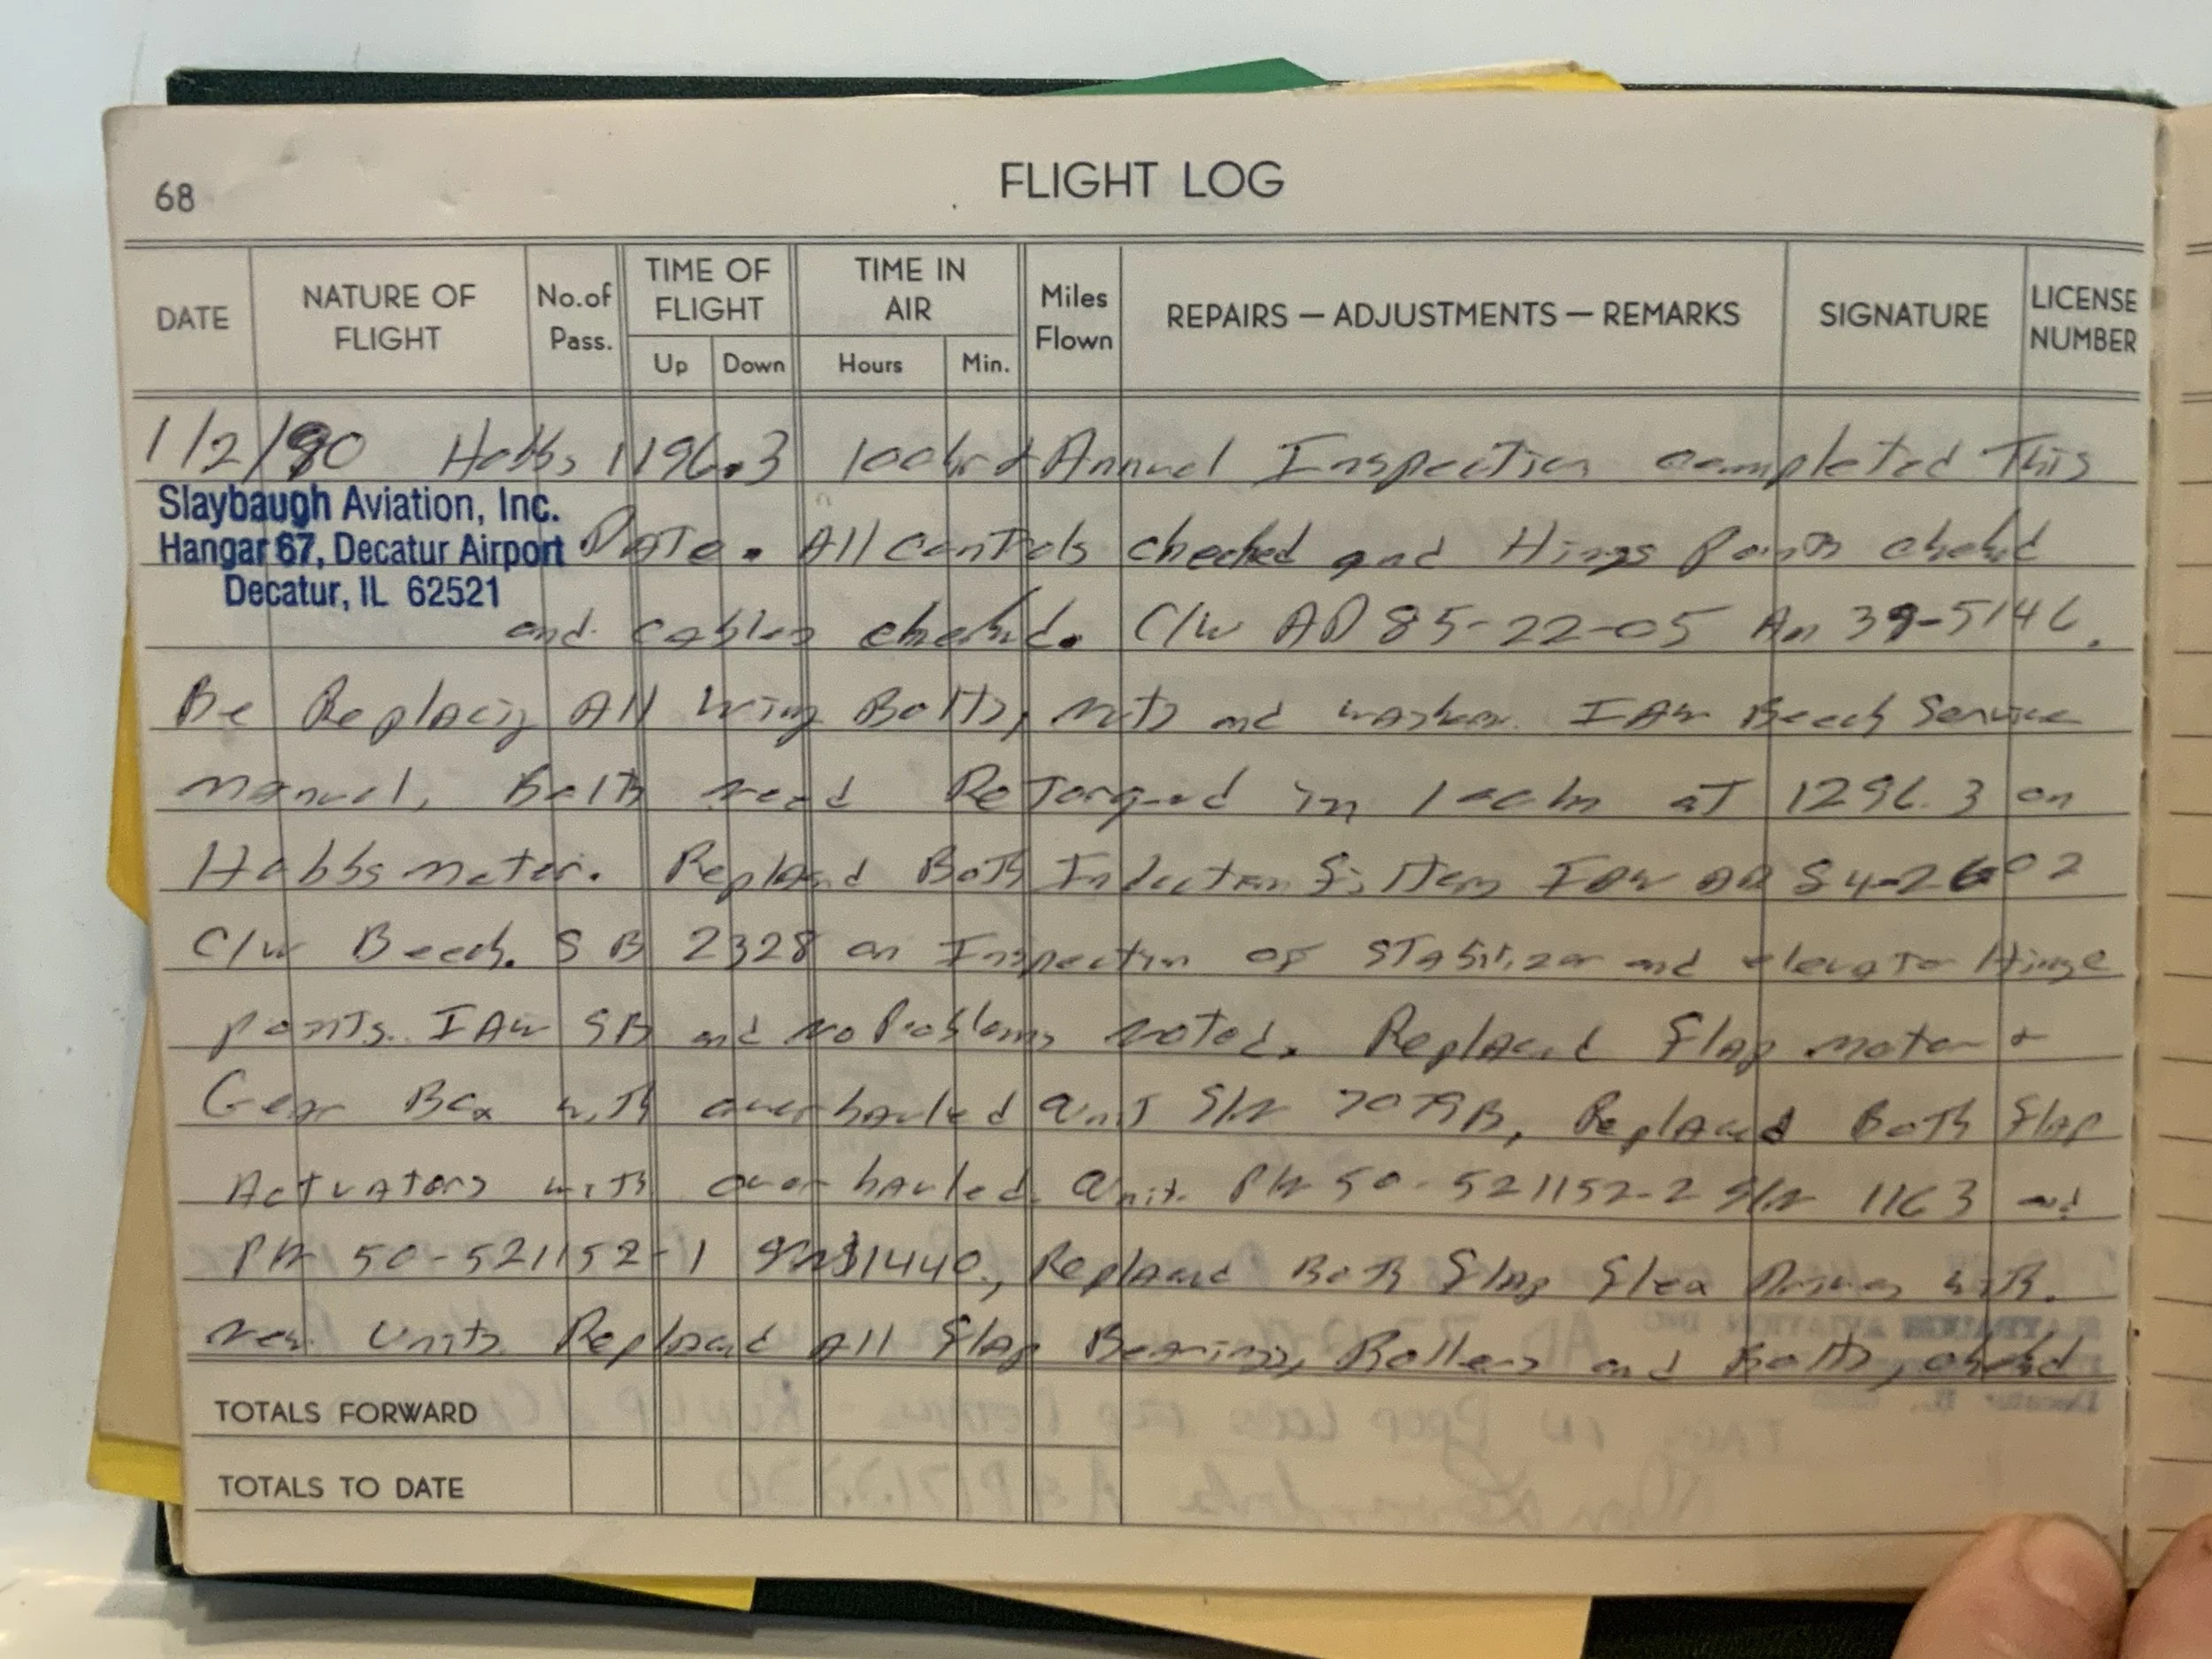 68
FLIGHT LOG
DATE
NATURE OF FLIGHT
No.of Pass.
TIME OF FLIGHT
Up
Down
TIME IN AIR
Hours
Min.
Miles Flown
REPAIRS — ADJUSTMENTS — REMARKS
SIGNATURE
LICENSE NUMBER
1/2/90 Hobbs 1196.3 100hr & Annual Inspection completed This
Slaybaugh Aviation, Inc.
Hangar 67, Decatur Airport
Decatur, IL 62521
Date. All controls checked and Hinge Points checked
and cables checked. C/W AD 85-22-05 Am 39-5146.
Be Replacing All wing Bolts, nuts and washers. IAW Beech Service
manual, Bolts need ReTorqued in 100hr aT 1296.3 on
Hobbs meter. Replaced Both Induction filters IAW AD 84-26-02
C/W Beech. SB 2328 on Inspection of STabilizer and elevator Hinge
points. IAW SB and No Problems noted. Replaced Flap motor &
Gear Box with overhauled unit S/N 7079B, Replaced Both Flap
Actuators with overhauled unit. P/N 50-521152-2 S/N 1163 and
P/N 50-521152-1 1440, Replaced Both Flap Flex Drives with.
new Units Replaced All Flap Bearings, Rollers and Bolts, checked
TOTALS FORWARD
TOTALS TO DATE